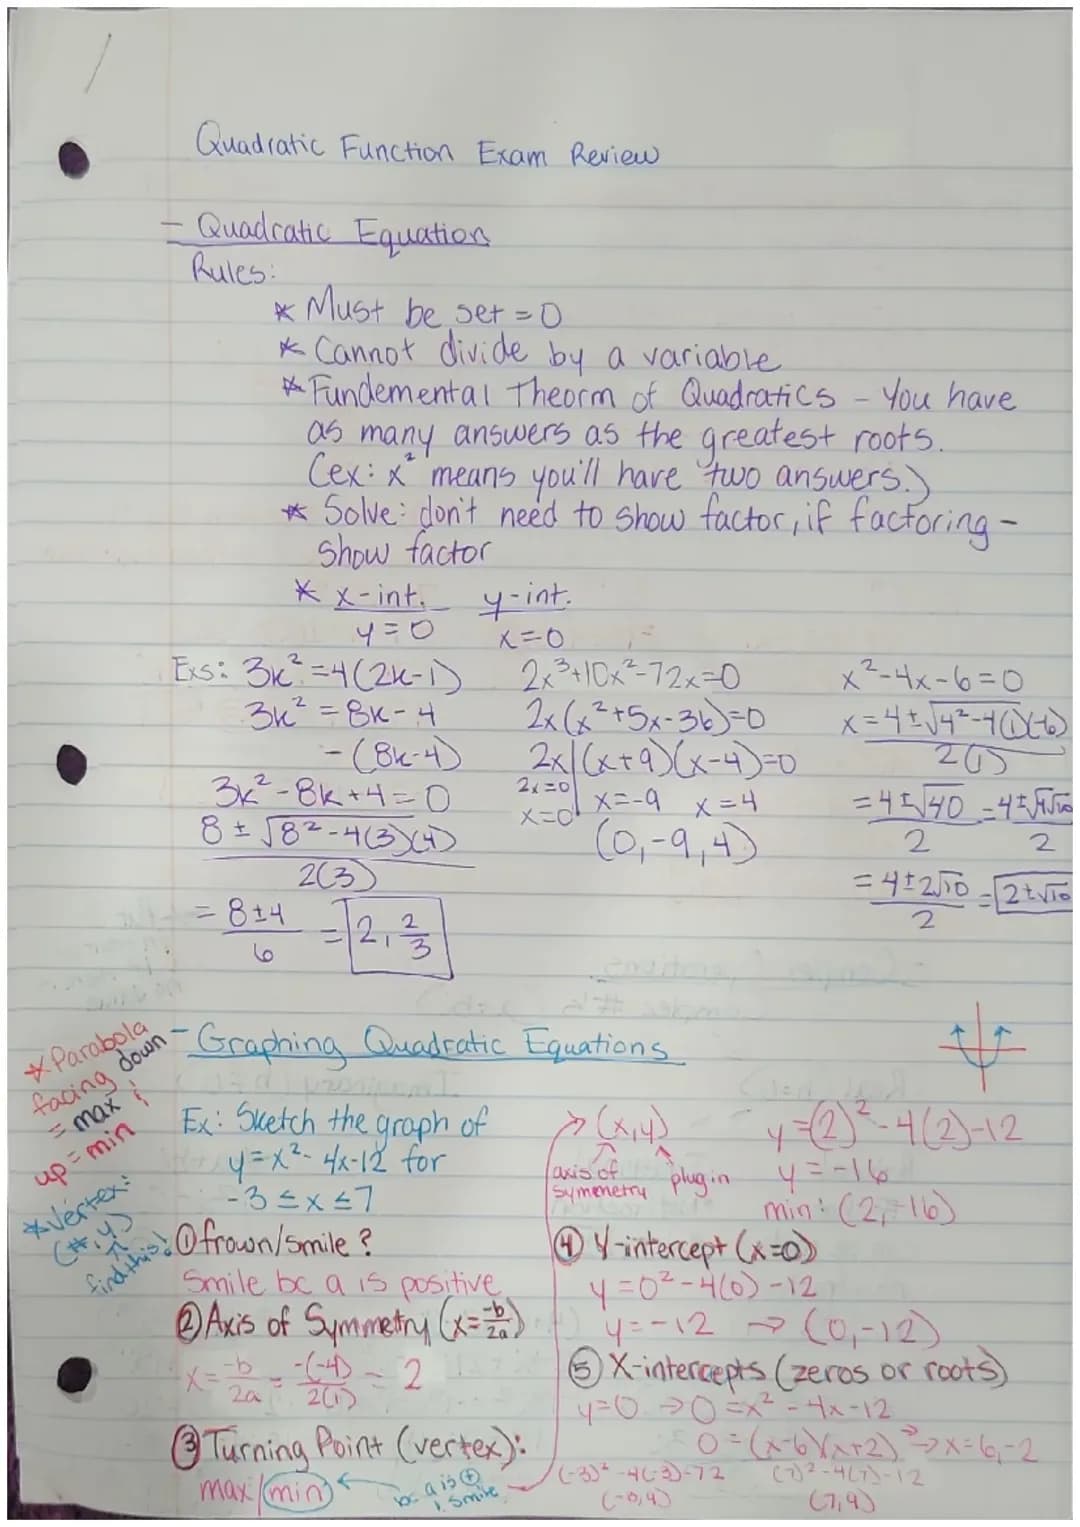 Quadratic Function Exam Review
- Quadratic Equation
Rules:
* Must be set = 0
* Cannot divide by a variable
* Fundemental Theorm of Quadratics - You have
as many answers as the greatest roots.
(ex: x² means you'll have two answers.)
* Solve: don't need to show factor, if factoring -
show factor
* x-int. y-int.
y = 0 x = 0
Exs: 3k² = 4(2k-1)
3k² = 8k - 4
- (8k-4)
3k² - 8k + 4 = 0
8 ± √8² - 4(3)(4)
2(3)
= 8±4
6
= 2, 2/3
2x³+10x²-72x=0
2x(x²+5x-36)=0
2x|(x+9)(x-4)=0
2x=0 x=-9 x=4
x=0
(0,-9,4)
x²-4x-6=0
x = 4±√4²-4(1)(-6)
2(1)
= 4±√40 = 4±√4√10
2 2
= 4±2√10 = 2±√10
2
* Parabola
facing down
= max ;
up = min
* Vertex:
(#, y)
find this!
- Graphing Quadratic Equations
Ex: Sketch the graph of
y = x² - 4x-12 for
-3 ≤ x ≤ 7
① frown/smile?
Smile bc a is positive
② Axis of Symmetry (x = -b/2a)
x = -b/2a = -(-4)/2(1) = 2
③ Turning Point (vertex):
max/min
bc a is ⊕
smile
→ (x,y)
axis of
symmetry
plug in
y = (2)² - 4(2)-12
y = -16
min: (2,-16)
④ Y-intercept (x=0)
y = 0² - 4(0) - 12
y = -12 → (0,-12)
⑤ X-intercepts (zeros or roots)
y=0 → 0 = x² - 4x-12
0 = (x-6)(x+2) → x = 6, -2
(-3)² -4(-3)-12 (7)² - 4(7)-12
(7,9)